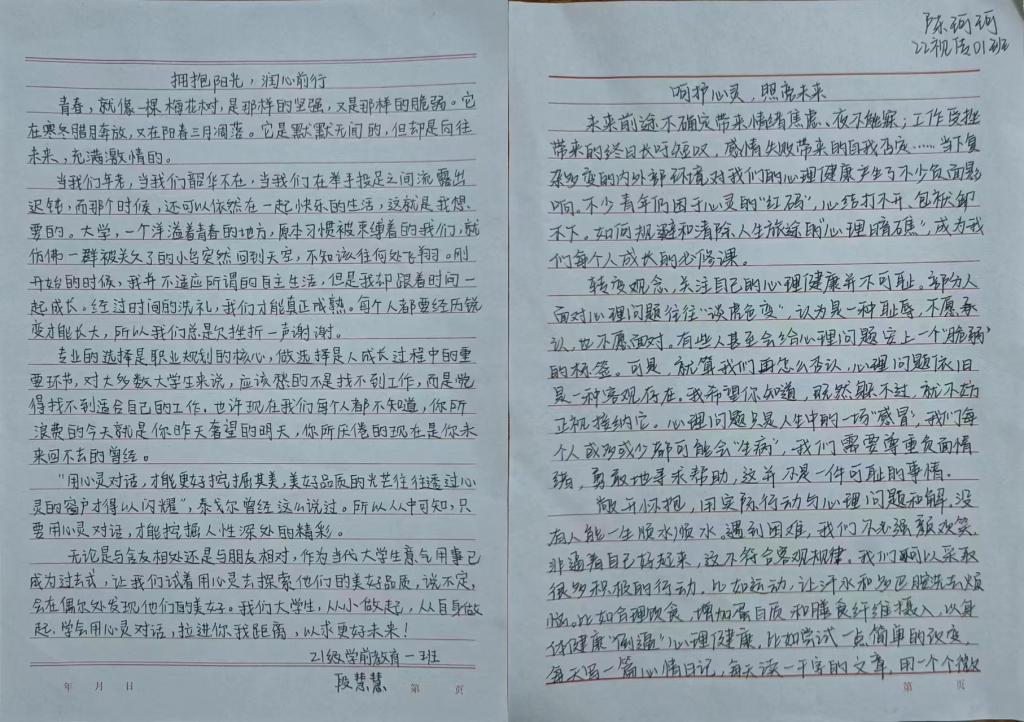 拥抱阳光，润心前行
青春，就像一棵梅花树，是那样的坚强，又是那样的脆弱。它
在寒冬腊月奔放，又在阳春三月凋落。它是默默无闻的，但却是向往
未来，充满激情的。
当我们年老，当我们韶华不在，当我们在举手投足之间流露出
迟钝，而那个时候，还可以依然在一起快乐的生活，这就是我想
要的。大学，一个洋溢着青春的地方，原本习惯被束缚着的我们，就
仿佛一群被关久了的小鸟突然回到天空，不知该往何处飞翔。刚
开始的时候，我并不适应所谓的自主生活，但是我却跟着时间一
起成长。经过时间的洗礼，我们才能真正成熟。每个人都要经历蜕
变才能长大，所以我们总是欠挫折一声谢谢。
专业的选择是职业规划的核心，做选择是人成长过程中的重
要环节，对大多数大学生来说，应该愁的不是找不到工作，而是觉
得找不到适合自己的工作。也许现在我们每个人都不知道，你所
浪费的今天就是你昨天奢望的明天，你所厌倦的现在是你未
来回不去的曾经。
“用心灵对话，才能更好挖掘其美，美好品质的光芒往往透过心
灵的窗户才得以闪耀”，泰戈尔曾经这么说过。所以从中可知，只
要用心灵对话，才能挖掘人性深处的精彩。
无论是与舍友相处还是与朋友相对，作为当代大学生意气用事已
成为过去式，让我们试着用心灵去探索他们的美好品质，说不定，
会在偶尔处发现他们的美好。我们大学生，从小做起，从自身做
起，学会用心灵对话，拉进你我距离，以求更好未来！
21级学前教育一班
段慧慧
年 月 日 第 页
陈珂珂
22视传01班
呵护心灵，照亮未来
未来前途不确定带来情绪焦虑、夜不能寐；工作受挫
带来的终日长吁短叹，感情失败带来的自我否定……当下复
杂多变的内外部环境对我们的心理健康产生了不少负面影
响。不少青年仍困于心灵的“红码”，心结打不开，包袱卸
不下。如何规避和清除人生旅途的“心理暗礁”，成为我
们每个人成长的必修课。
转变观念，关注自己的心理健康并不可耻。部分人
面对心理问题往往“谈虎色变”，认为是一种耻辱，不愿承
认，也不愿面对。有些人甚至会给心理问题安上一个“脆弱”
的标签。可是，就算我们再怎么否认，心理问题依旧
是一种客观存在。我希望你知道，既然躲不过，就不妨
正视接纳它。心理问题只是人生中的一场“感冒”，我们每
个人或多或少都可能会“生病”，我们需要尊重负面情
绪，勇敢地寻求帮助，这并不是一件可耻的事情。
敞开怀抱，用实际行动与心理问题和解。没
有人能一生顺水顺水。遇到困难，我们不必强颜欢笑，
非逼着自己好起来，这不符合客观规律。我们可以采取
很多积极的行动。比如运动，让汗水和多巴胺洗去烦
恼。比如合理饮食，增加蛋白质和膳食纤维摄入，以身
体健康“倒逼”心理健康。比如尝试一点简单的改变，
每天写一篇心情日记，每天读一千字的文章，用一个个微
第 页